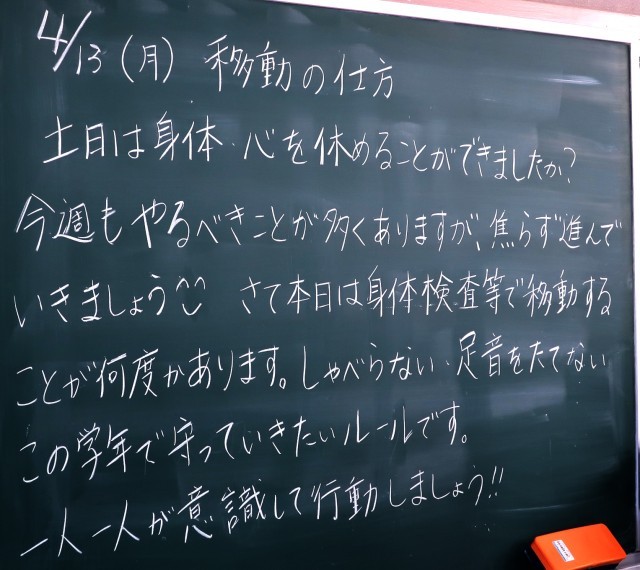 4/13（月） 移動の仕方
土日は身体・心を休めることができましたか？
今週もやるべきことが多くありますが、焦らず進んで
いきましょう さて本日は身体検査等で移動する
ことが何度かあります。しゃべらない・足音をたてない
この学年で守っていきたいルールです。
一人一人が意識して行動しましょう!!